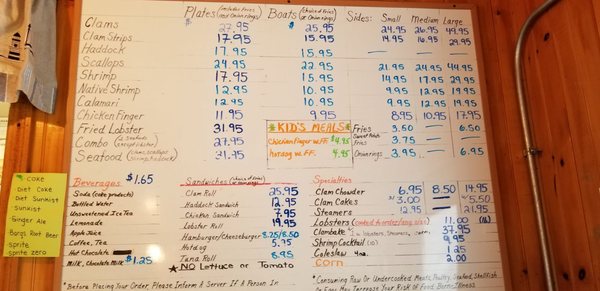 Plates (includes fries and Onion rings) Boats (choice of fries or Onion rings) Sides: Small Medium Large
Clams 27.95 $ 25.95 24.95 26.95 49.95
Clam Strips 17.95 15.95 14.95 16.95 29.95
Haddock 17.95 15.95 — —
Scallops 24.95 22.95 21.95 24.95 44.95
Shrimp 17.95 15.95 14.95 17.95 29.95
Native Shrimp 12.95 10.95 9.95 12.95 19.95
Calamari 12.95 10.95 9.95 12.95 19.95
Chicken Finger 11.95 9.95 8.95 10.95 17.95
Fried Lobster 31.95
Combo 27.95
Seafood 31.95
KID'S MEALS
Chicken Finger w.FF. $4.95
Hotdog w.FF. 4.95
Fries 3.50 — 6.50
Sweet Potato Fries 3.75 —
Onion rings 3.95 — 6.95
COKE
Diet Coke
Diet Sunkist
Sunkist
Ginger Ale
Barqs Root Beer
sprite
sprite zero
Beverages $1.65
Soda (coke products)
Bottled Water
Unsweetened Ice Tea
Lemonade
Apple Juice
Coffee, Tea
Hot Chocolate
Milk, Chocolate Milk $1.25
Sandwiches
Clam Roll 25.95
Haddock Sandwich 12.95
Chicken Sandwich 7.95
Lobster Roll 19.95
Hamburger/Cheeseburger 8.25/8.50
Hotdog 5.95
Tuna Roll 8.95
★NO Lettuce or Tomato
Specialties
Clam Chowder 6.95 8.50 14.95
Clam Cakes 3.00 — 5.50
Steamers 12.95 21.95
Lobsters 11.00
Clambake 37.95
Shrimp Cocktail (10) 9.95
Coleslaw 4oz. 1.25
Corn 2.00
*Before Placing Your Order, Please Inform A Server If A Person In
*Consuming Raw Or Undercooked Meats, Poultry, Seafood, Shellfish
Or Eggs May Increase Your Risk Of Food Borne Illness